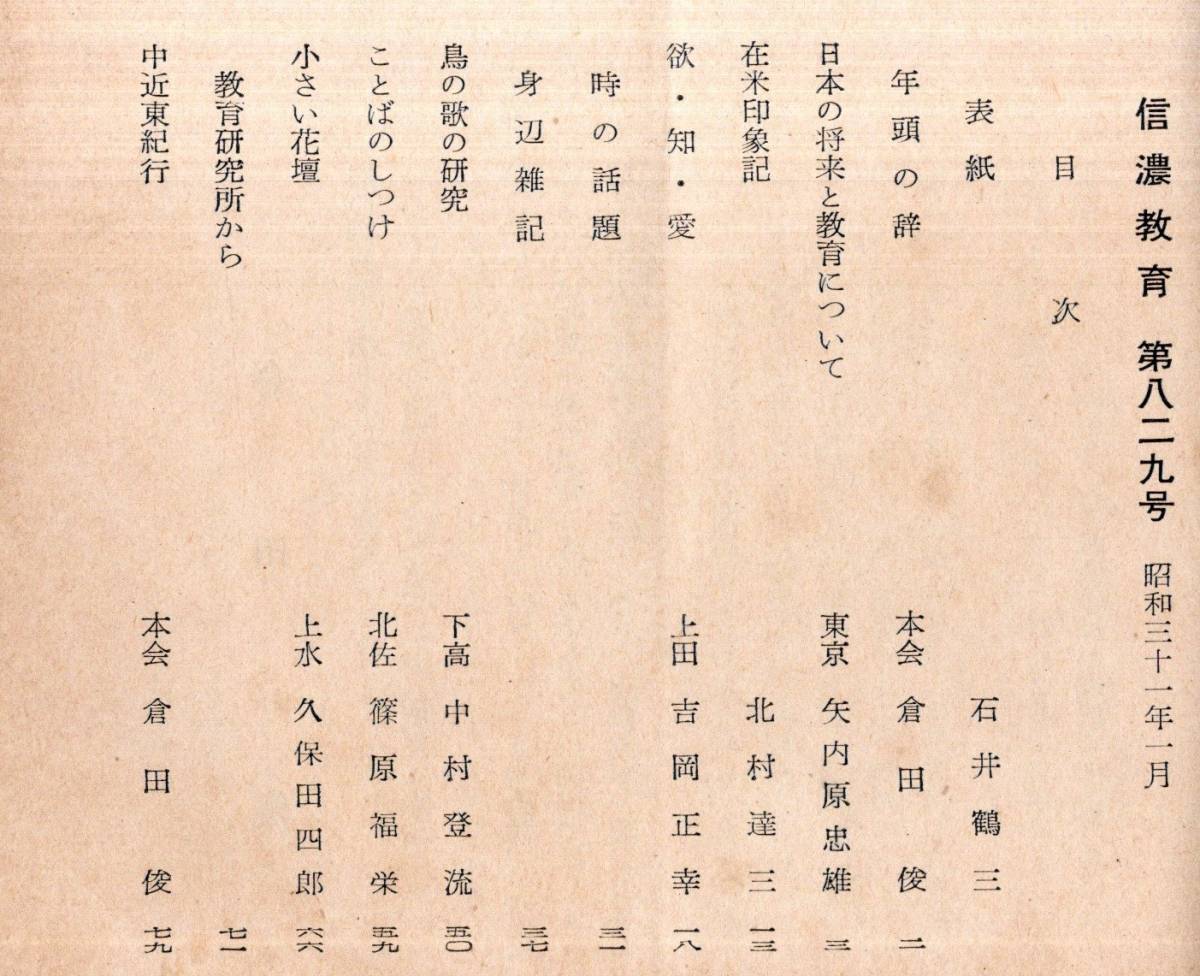 信濃教育 第八二九号 昭和三十一年一月
目次
表紙 石井鶴三
年頭の辞 本会 倉田俊 二
日本の将来と教育について 東京 矢内原忠雄 三
在米印象記 北村達三 一三
欲・知・愛 上田 吉岡正幸 一八
時の話題 三一
身辺雑記 三七
鳥の歌の研究 下高 中村登流 五〇
ことばのしつけ 北佐 篠原福栄 五九
小さい花壇 上水 久保田四郎 六六
教育研究所から 七一
中近東紀行 本会 倉田俊 七九